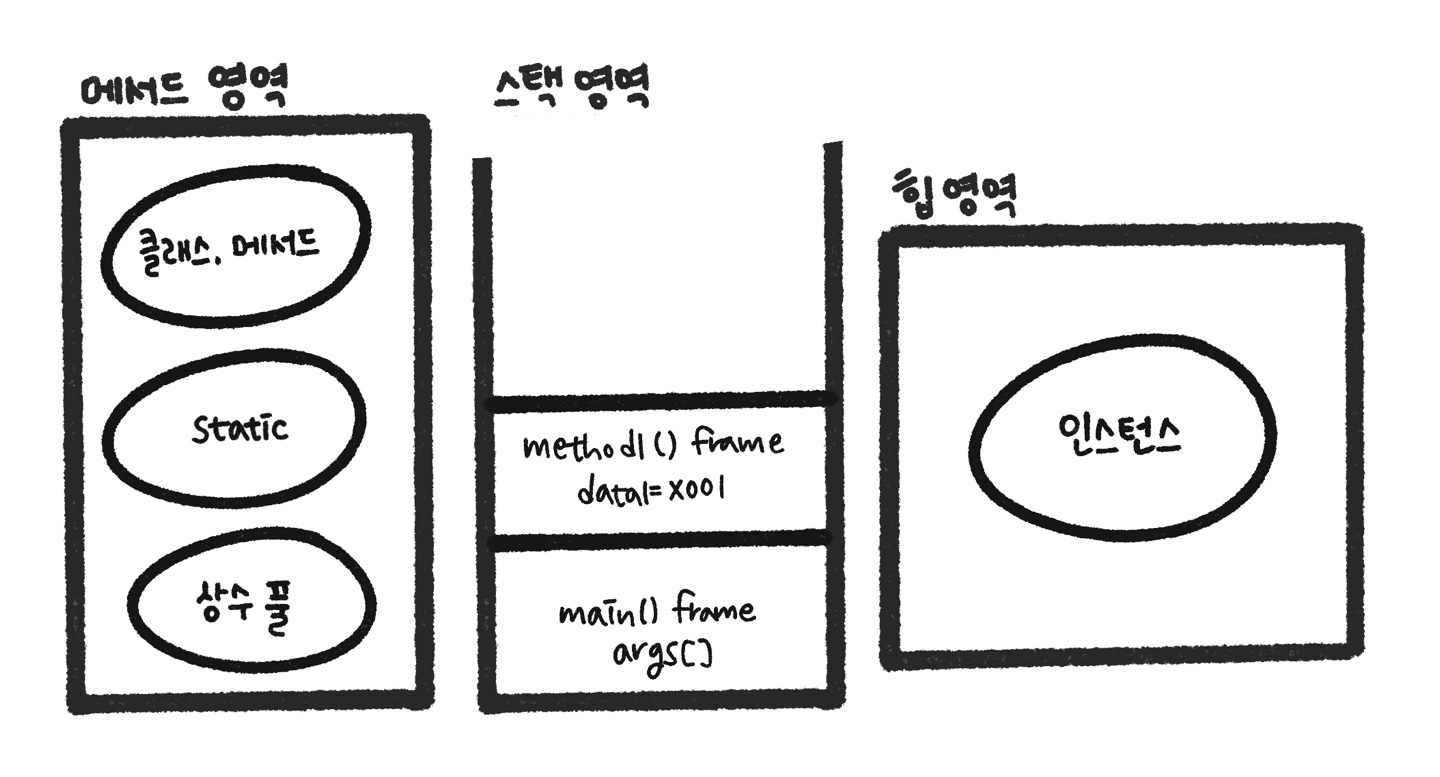 메서드 영역
클래스, 메서드
Static
상수 풀
스택 영역
method1() frame
data1=x001
main() frame
args[]
힙 영역
인스턴스